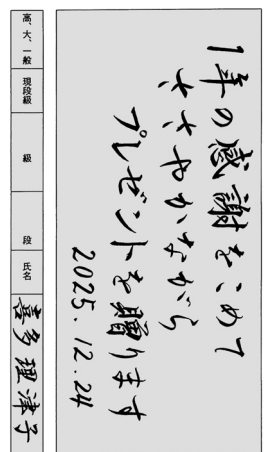 1年の感謝をこめて
ささやかながら
プレゼントを贈ります
2025.12.24
高、大、一般
現段級
級
段
氏名
喜多理津子